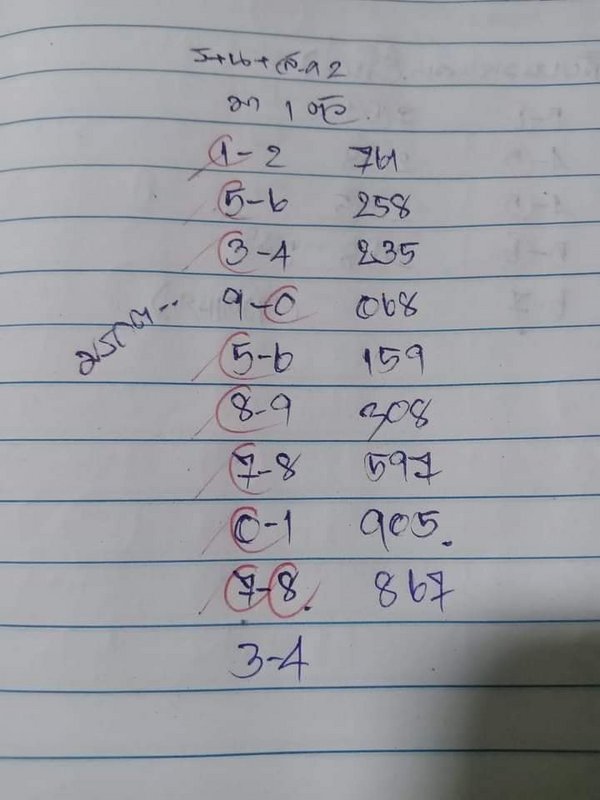 มา 1 ตัว.
1-2 761
5-6 258
3-4 235
9-0 068
5-6 159
8-9 308
7-8 597
0-1 905.
7-8. 867
3-4